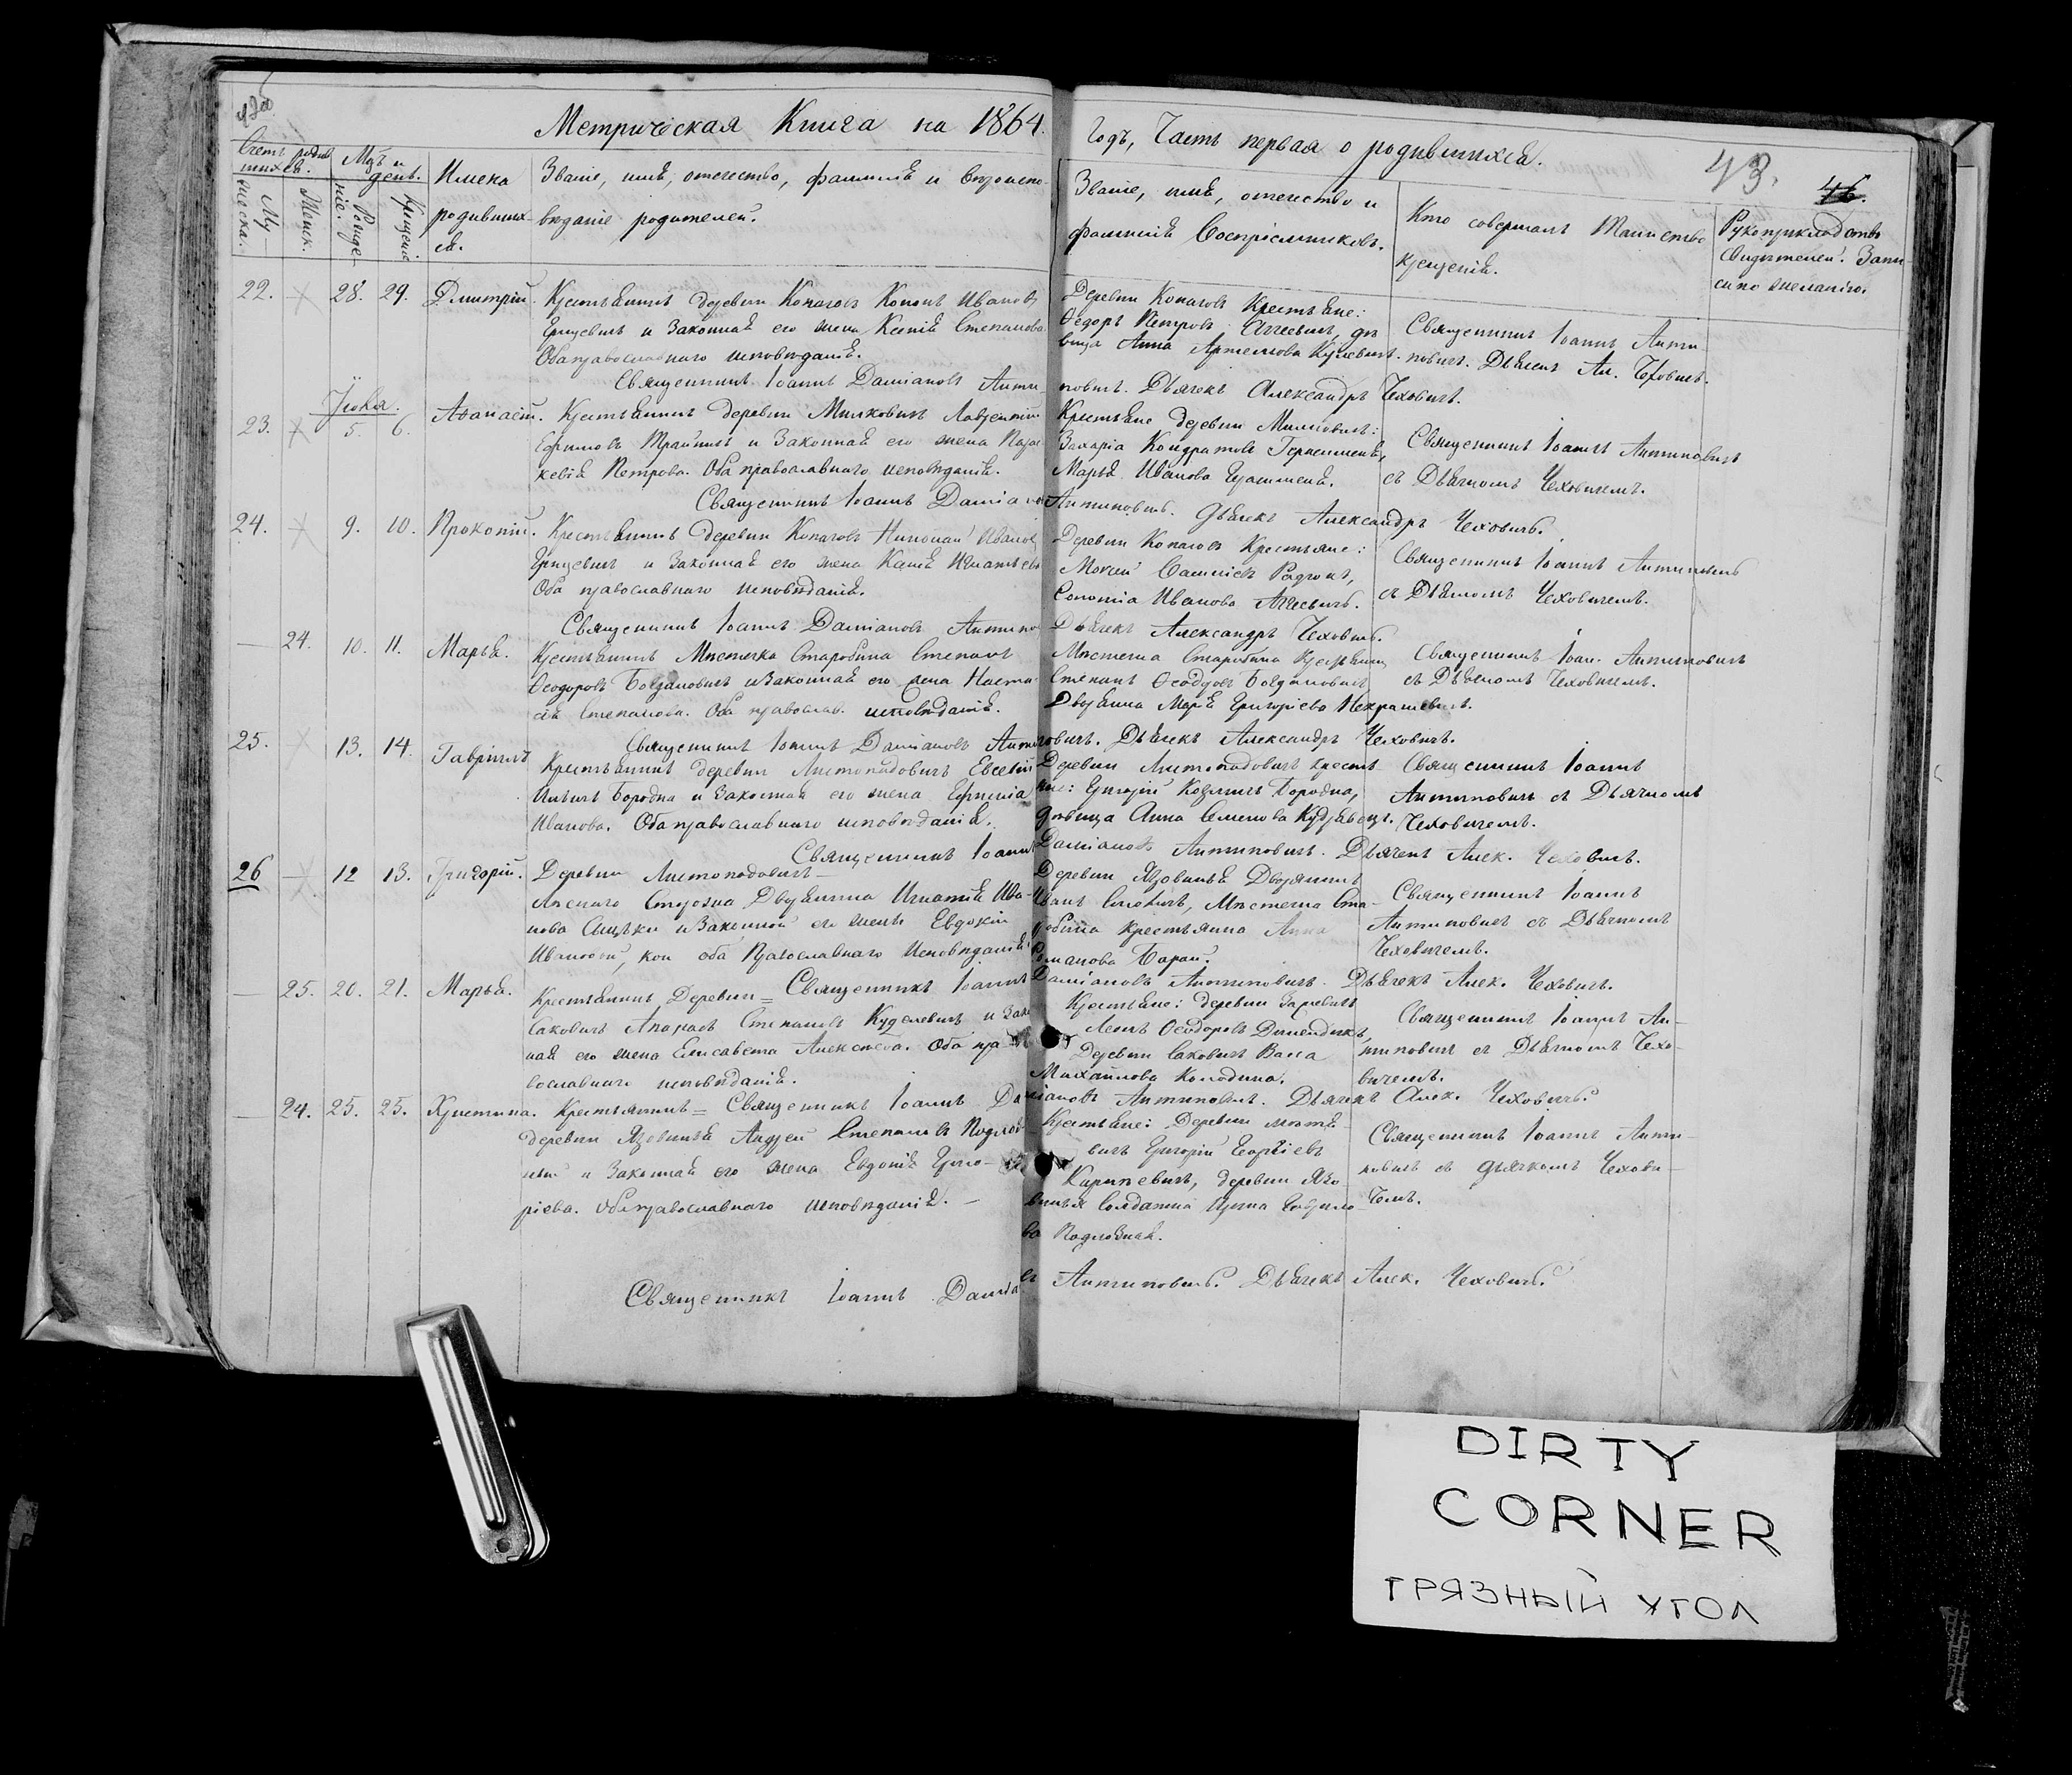 Метрическая Книга на 1864.
Годъ, Часть первая о родившихся.
43.
46.
Счетъ родив
шихся.
Мцъ и
день.
Имена
родивших-
ся.
Званіе, имя, отечество, фамилія и вѣроиспо-
вѣданіе родителей.
Му-
жеска.
Женск.
Рожде-
ніе.
Крещеніе
Званіе, имя, отечество и
фамилія Воспріемниковъ.
Кто совершалъ Таинство
крещенія.
Рукоприкладство
свидѣтелей. Запи
си по желанію.
22. 28. 29. Дмитрій.
Крестьянинъ деревни Копачовъ Кононъ Ивановъ
Грицевичъ и Законная его жена Ксенія Степанова
Оба православнаго исповѣданія.
Деревни Копачовъ Крестьяне:
Ѳедоръ Петровъ Агеевичъ, дѣ
вица Анна Артемова
Священникъ Іоаннъ Анти-
повичъ. Дьячекъ Ал. Чеховичъ.
Священникъ Іоаннъ Даміановъ Анти
повичъ. Дьячекъ Александръ Чеховичъ.
Іюня.
23. 5. 6. Аѳанасій.
Крестьянинъ деревни Милковичъ Лаврентій
Ефимовъ и Законная его жена Парас
кевія Петрова. Оба православнаго исповѣданія.
Крестьяне деревни Милковичъ:
Захарія Кондратовъ Герасименя,
Марья Иванова
Священникъ Іоаннъ Антиповичъ
съ Дьячкомъ Чеховичемъ.
Священникъ Іоаннъ Даміановъ
Антиповичъ. Дьячекъ Александръ Чеховичъ.
24. 9. 10. Прокопій.
Крестьянинъ деревни Копачовъ Николай Ивановъ
Грицевичъ и Законная его жена Игнатьева
Оба православнаго исповѣданія.
Деревни Копачовъ Крестьяне:
Моисей
Соломія Иванова Агеевичъ.
Священникъ Іоаннъ Антиповичъ
съ Дьячкомъ Чеховичемъ.
Священникъ Іоаннъ Даміановъ Антипо
Дьячекъ Александръ Чеховичъ.
24. 10. 11. Марья.
Крестьянинъ Мѣстечка Старобина Степанъ
Ѳеодоровъ Богдановичъ и Законная его жена Наста
сія Степанова. Оба православ. исповѣданія.
Мѣстечка Старобина Крестьянинъ
Степанъ Ѳеодоровъ Богдановичъ
Дворянка Марія Григоріева Некрашевичъ.
Священникъ Іоан. Антиповичъ
съ Дьячкомъ Чеховичемъ.
Священникъ Іоаннъ Даміановъ Анти
повичъ. Дьячекъ Александръ Чеховичъ.
25. 13. 14. Гавріилъ
Крестьянинъ деревни Листопадовичъ Евсевій
Бородка и Законная его жена
Иванова. Оба православнаго исповѣданія.
Деревни Листопадовичъ крестья-
не: Григорій Бородка,
дѣвица Анна Семенова
Священникъ Іоаннъ
Антиповичъ съ Дьячкомъ
Чеховичемъ.
Священникъ Іоаннъ
Даміановъ Антиповичъ. Дьячекъ Алек. Чеховичъ.
26 12 13. Григорій.
Деревни Листопадовичъ
Лѣснаго Дворянина Игнатія Ива-
нова и Законной его жены Евдокіи
Ивановой, кои оба Православнаго Исповѣданія
Деревни Языковичъ Дворянинъ
Иванъ Мѣстечка Ста-
робина крестьянка Анна
Романова Баран.
Священникъ Іоаннъ
Антиповичъ съ Дьячкомъ
Чеховичемъ.
Священникъ Іоаннъ
Даміановъ Антиповичъ. Дьячекъ Алек. Чеховичъ.
25. 20. 21. Марья.
Крестьянинъ Деревни
Саковичъ Степановъ Куделевичъ и Закон
ная его жена Елисавета Алексѣева. Оба пра-
вославнаго исповѣданія.
Крестьяне: деревни
Левъ Ѳеодоровъ
Деревни Саковичъ Васса
Михайлова Колодина.
Священникъ Іоаннъ Ан-
типовичъ съ Дьячкомъ Чехо-
вичемъ.
24. 25. 25. Христина.
Крестьянинъ = Священникъ Іоаннъ Да
міановъ Антиповичъ. Дьячекъ Алек. Чеховичъ.
деревни Андрей Степановъ
и Законная его жена Евдокія Григо-
ріева. Оба православнаго исповѣданія.
Крестьяне: Деревни
вичъ Григорій Георгіевъ
деревни
Солдатка Гаврило
ва
Священникъ Іоаннъ Анти-
повичъ съ дьячкомъ Чехови-
чемъ.
Священникъ Іоаннъ Даміа
Антиповичъ. Дьячекъ Алек. Чеховичъ.
DIRTY
CORNER
ГРЯЗНЫЙ УГОЛ